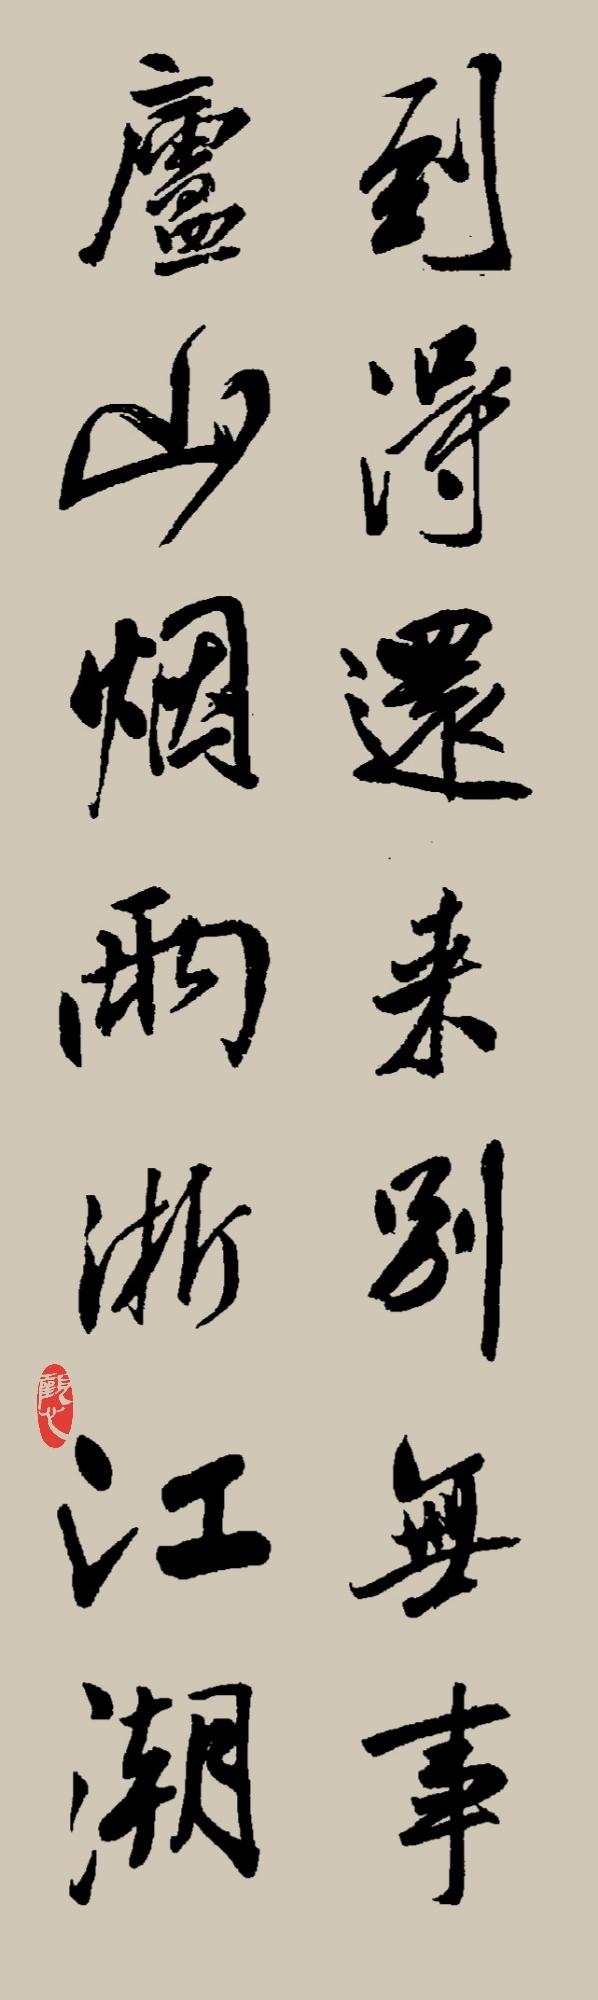 到得還来别無事
廬山烟雨浙江潮